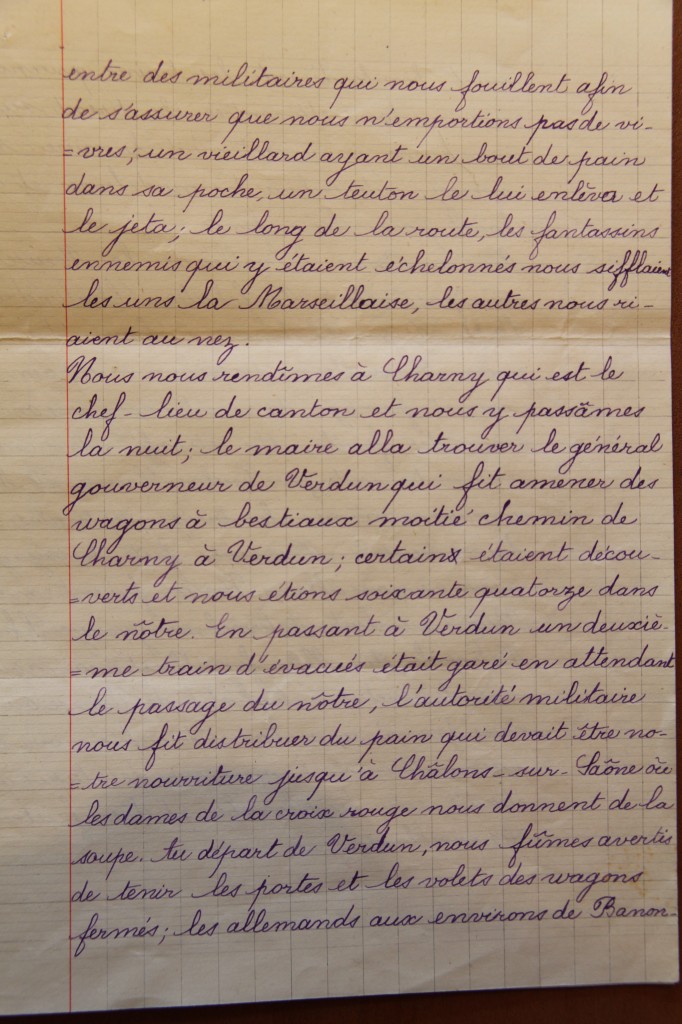 entre des militaires qui nous fouillent afin
de s'assurer que nous n'emportions pas de vi-
=vres; un vieillard ayant un bout de pain
dans sa poche, un teuton le lui enlêva et
le jeta; le long de la route, les fantassins
ennemis qui y étaient échelonnés nous sifflaient
les uns la Marseillaise, les autres nous ri-
aient au nez.
Nous nous rendîmes à Charny qui est le
chef-lieu de canton et nous y passâmes
la nuit; le maire alla trouver le général
gouverneur de Verdun qui fit amener des
wagons à bestiaux moitié chemin de
Charny à Verdun; certains étaient décou-
=verts et nous étions soixante quatorze dans
le nôtre. En passant à Verdun un deuxiè-
=me train d'évacués était garé en attendant
le passage du nôtre, l'autorité militaire
nous fit distribuer du pain qui devait être no-
=tre nourriture jusqu'à Châlons-sur-Saône où
les dames de la croix rouge nous donnent de la
soupe. Au départ de Verdun, nous fûmes avertis
de tenir les portes et les volets des wagons
fermés; les allemands aux environs de Banon-